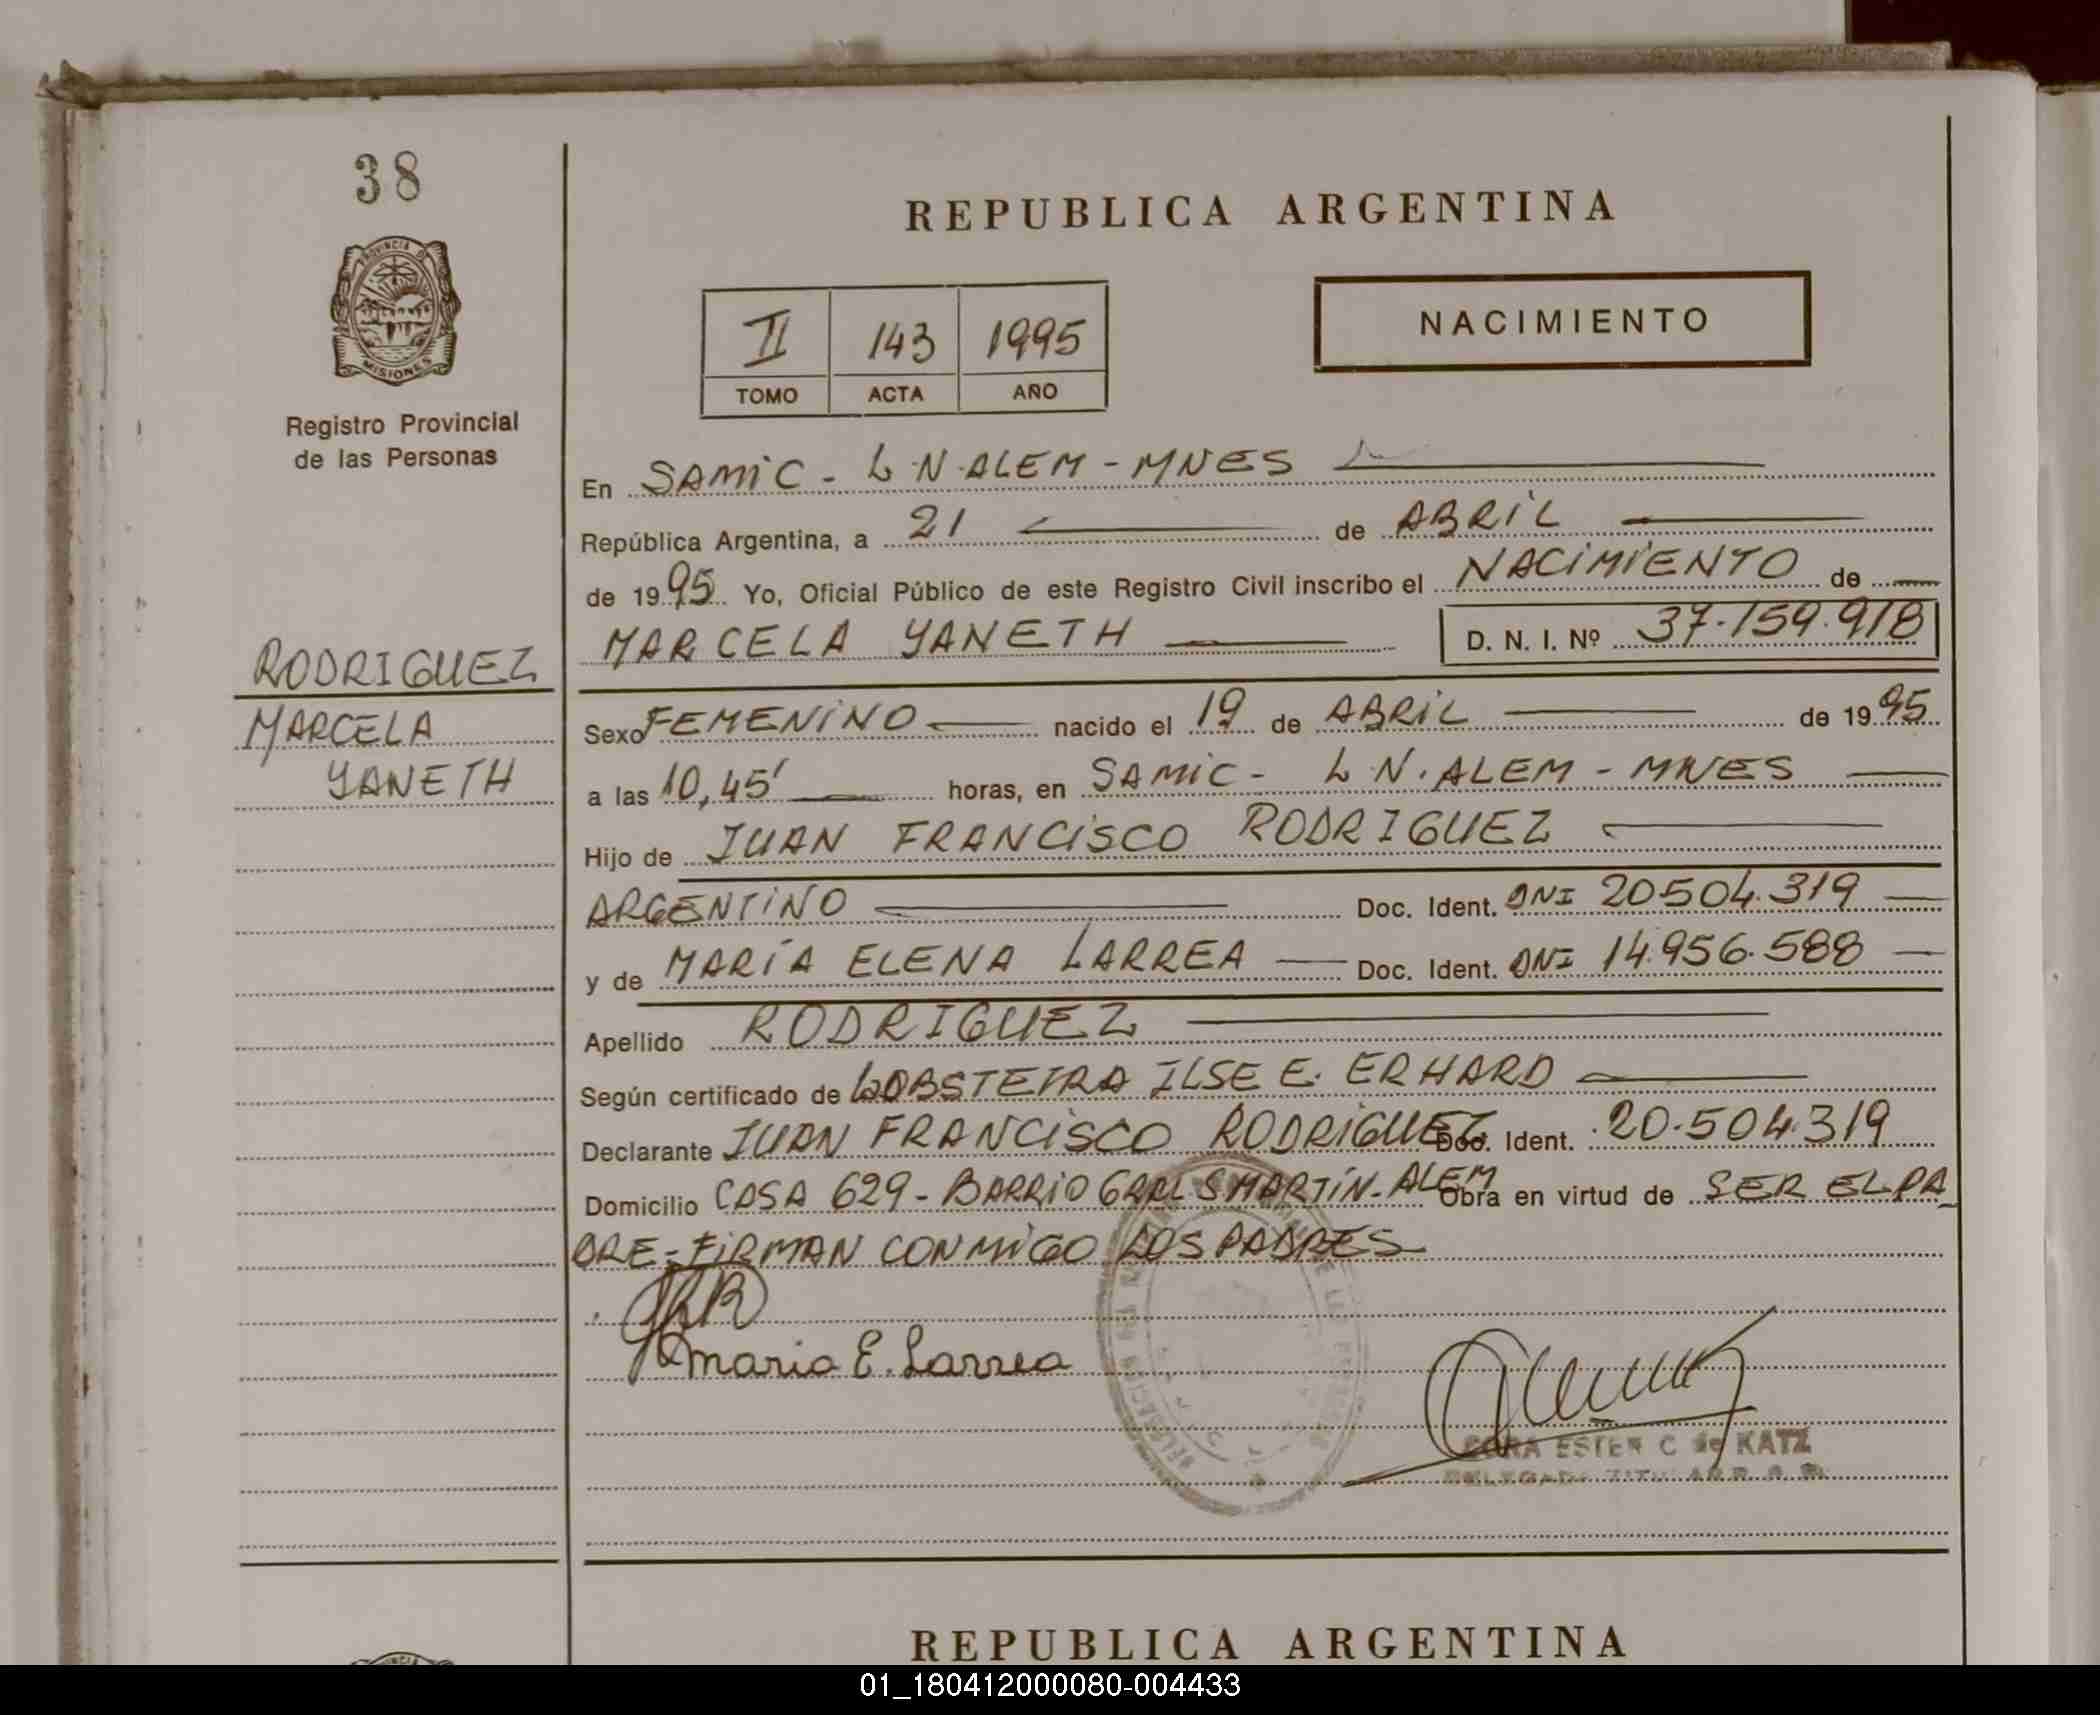 38
PROVINCIA DE
MISIONES
Registro Provincial
de las Personas
RODRIGUEZ
MARCELA
YANETH
REPUBLICA ARGENTINA
II 143 1995
TOMO ACTA AÑO
NACIMIENTO
En SAMIC - L.N. ALEM - MNES
República Argentina, a 21 de ABRIL
de 1995 Yo, Oficial Público de este Registro Civil inscribo el NACIMIENTO de
MARCELA YANETH D. N. I. Nº 37.159.918
Sexo FEMENINO nacido el 19 de ABRIL de 1995
a las 10,45' horas, en SAMIC - L.N. ALEM - MNES
Hijo de JUAN FRANCISCO RODRIGUEZ
ARGENTINO Doc. Ident. DNI 20.504.319
y de MARÍA ELENA LARREA Doc. Ident. DNI 14.956.588
Apellido RODRIGUEZ
Según certificado de LOBSTETRA ILSE E. ERHARD
Declarante JUAN FRANCISCO RODRIGUEZ Doc. Ident. 20.504.319
Domicilio CASA 629 - BARRIO GRAL SMARTÍN - ALEM Obra en virtud de SER EL PA
DRE - FIRMAN CONMIGO LOS PADRES
Maria E. Larrea
ESTER C de KATZ
REPUBLICA ARGENTINA
01_180412000080-004433